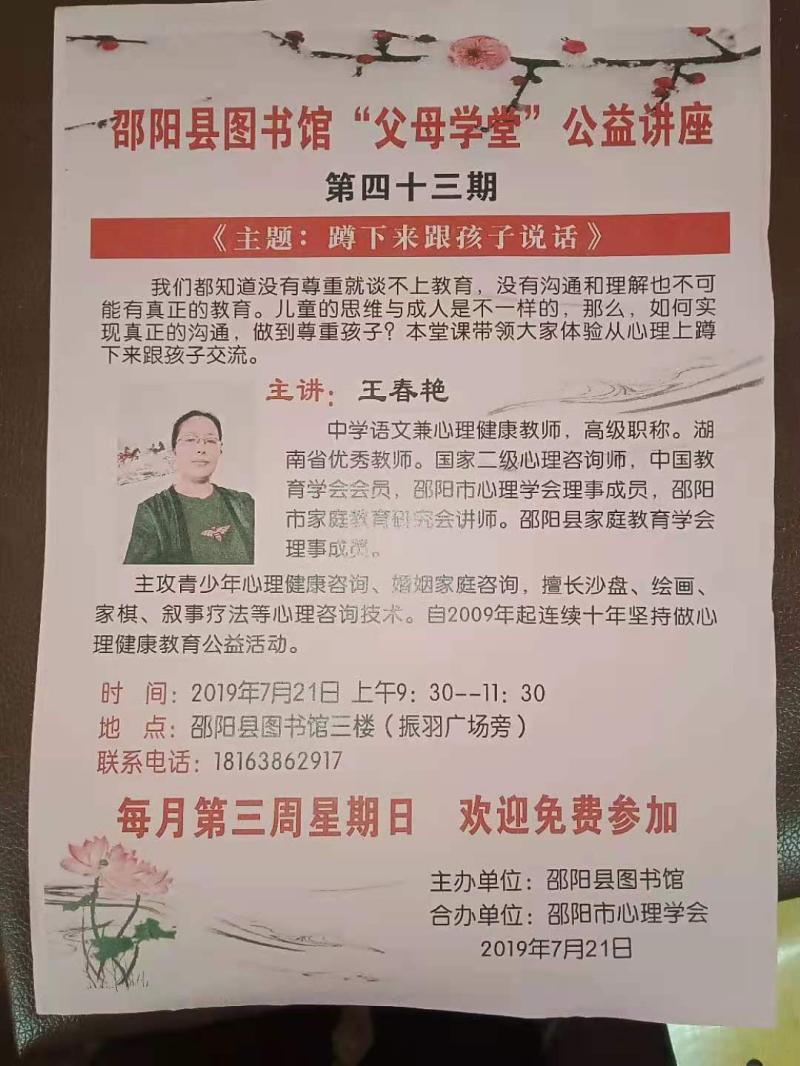 邵阳县图书馆“父母学堂”公益讲座
第四十三期
《主题：蹲下来跟孩子说话》
我们都知道没有尊重就谈不上教育，没有沟通和理解也不可
能有真正的教育。儿童的思维与成人是不一样的，那么，如何实
现真正的沟通，做到尊重孩子？本堂课带领大家体验从心理上蹲
下来跟孩子交流。
主讲：王春艳
中学语文兼心理健康教师，高级职称。湖
南省优秀教师。国家二级心理咨询师，中国教
育学会会员，邵阳市心理学会理事成员，邵阳
市家庭教育研究会讲师。邵阳县家庭教育学会
理事成员。
主攻青少年心理健康咨询、婚姻家庭咨询，擅长沙盘、绘画、
家棋、叙事疗法等心理咨询技术。自2009年起连续十年坚持做心
理健康教育公益活动。
时 间：2019年7月21日 上午9：30--11：30
地 点：邵阳县图书馆三楼（振羽广场旁）
联系电话：18163862917
每月第三周星期日 欢迎免费参加
主办单位：邵阳县图书馆
合办单位：邵阳市心理学会
2019年7月21日